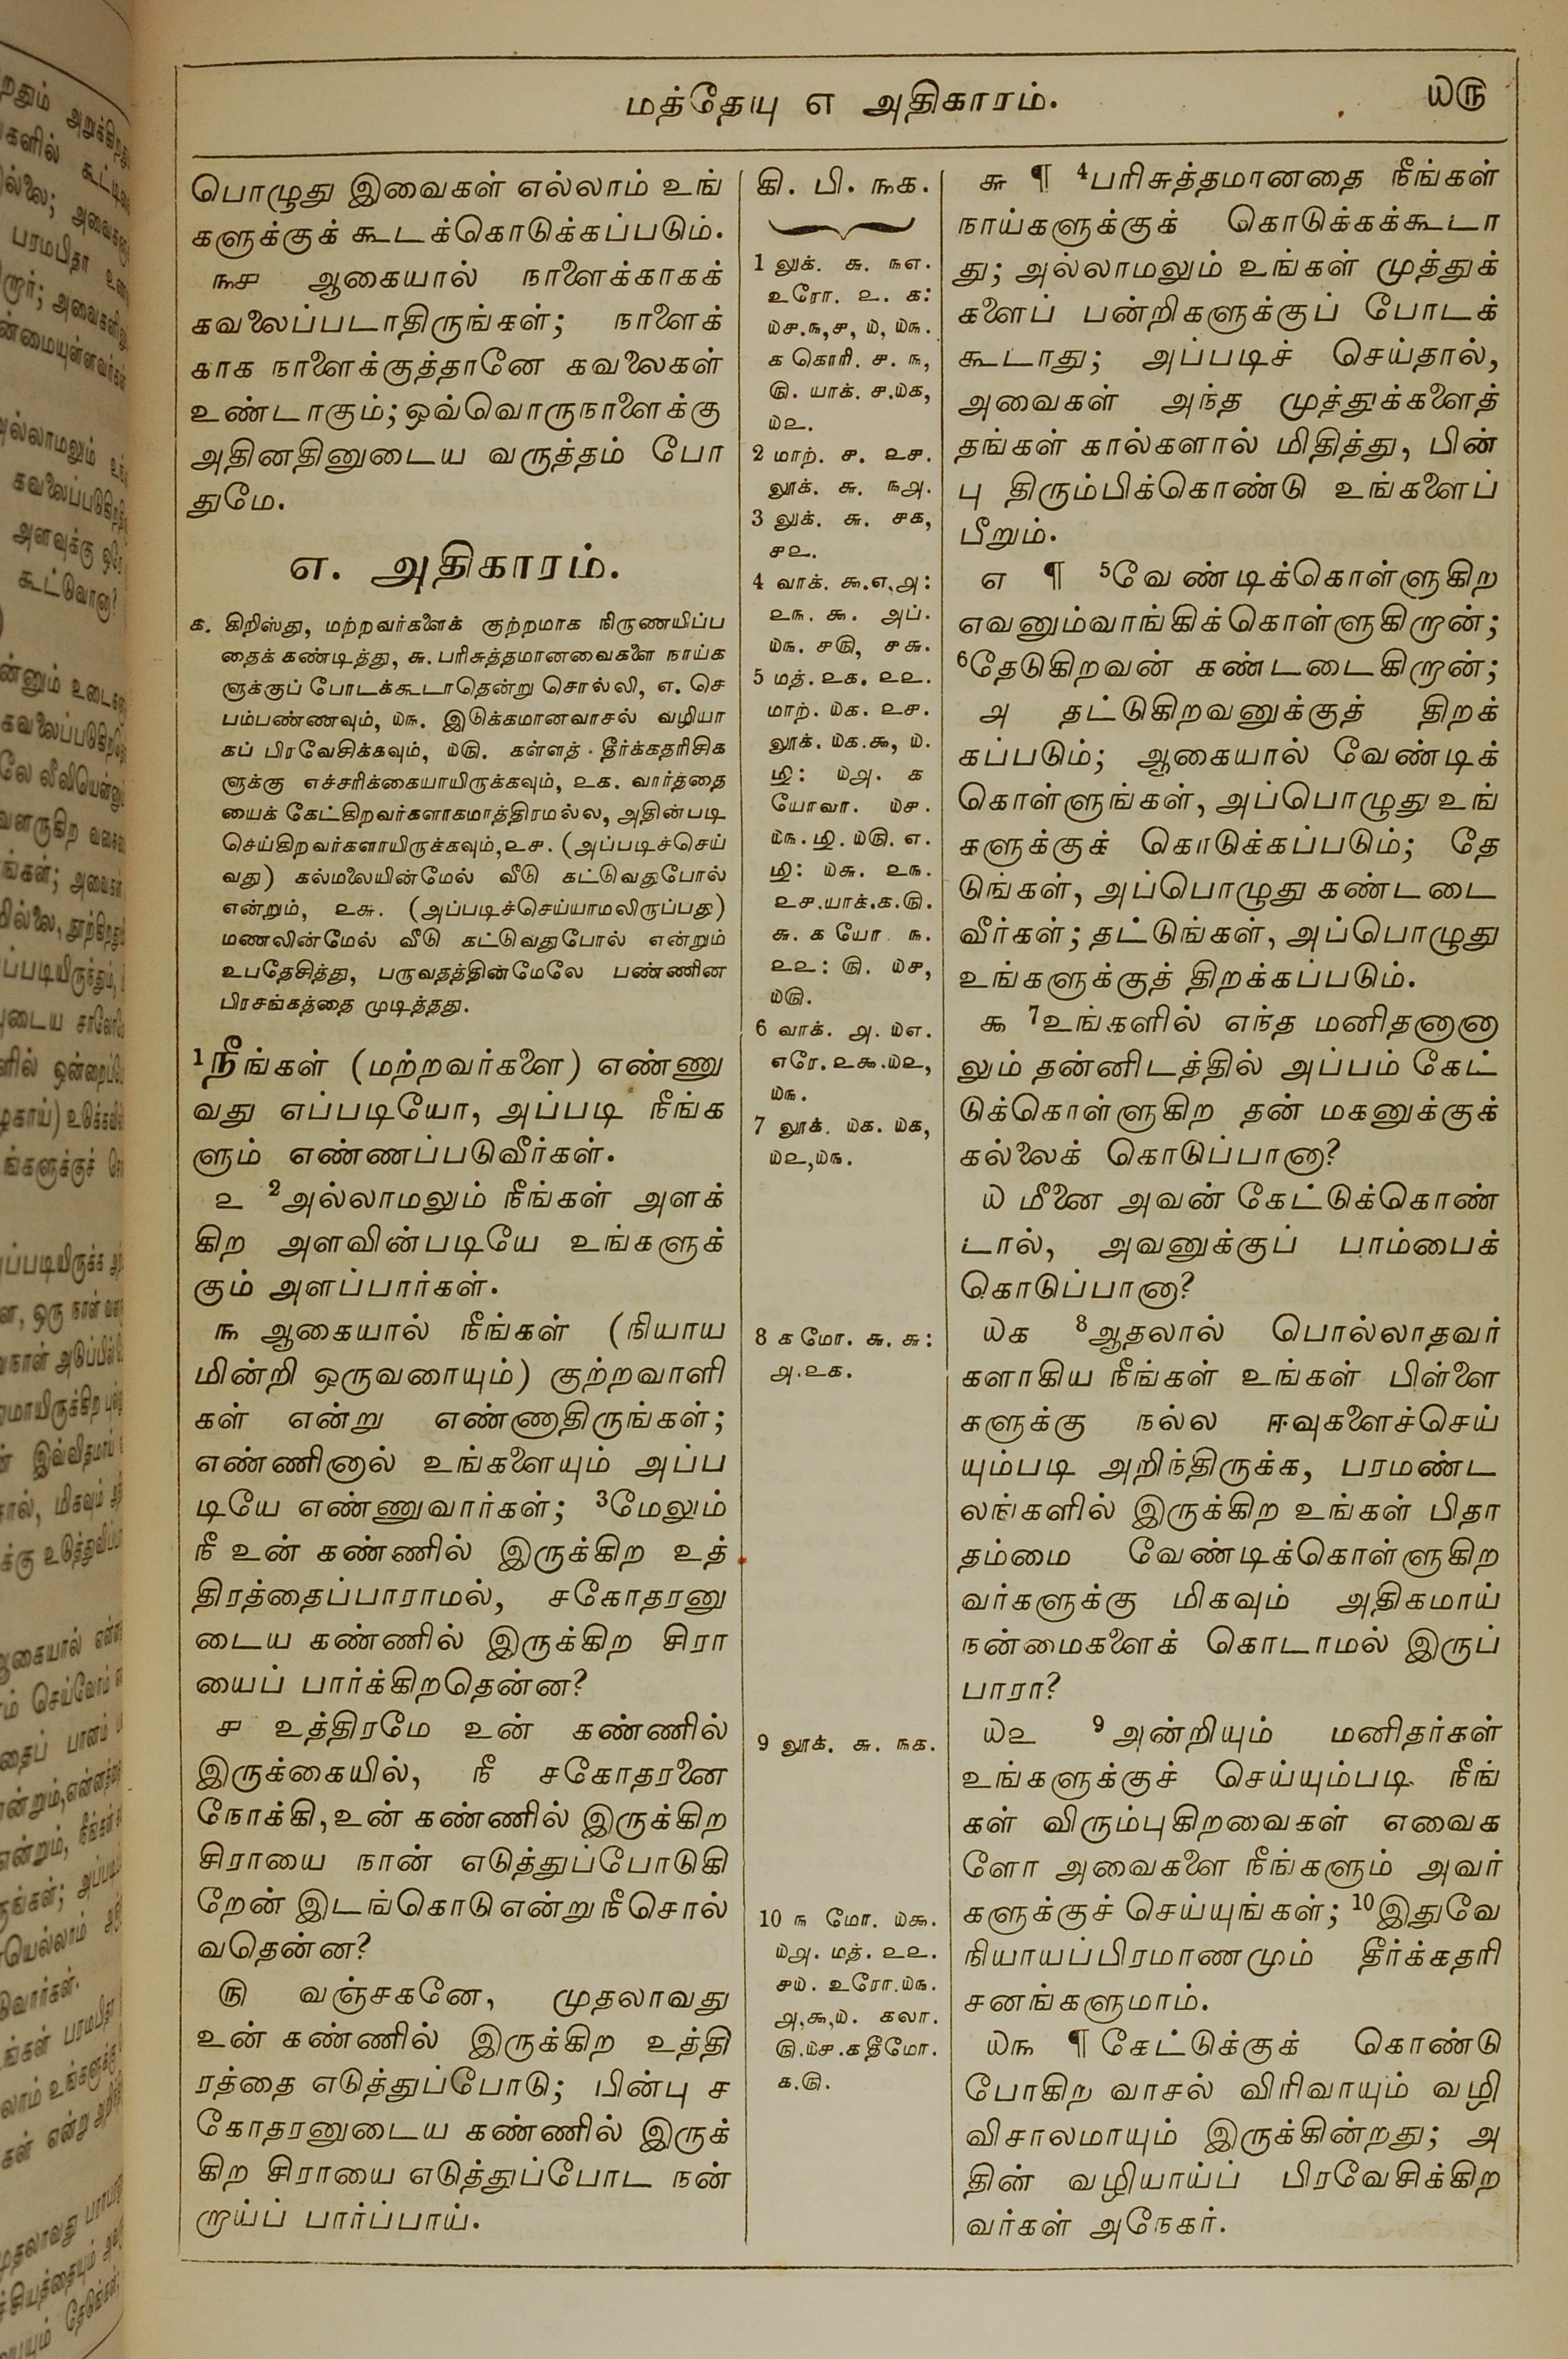 மத்தேயு எ அதிகாரம்.
௰௫
பொழுது இவைகள் எல்லாம் உங்
களுக்குக் கூடக்கொடுக்கப்படும்.
௩௪ ஆகையால் நாளைக்காகக்
கவலைப்படாதிருங்கள்; நாளைக்
காக நாளைக்குத்தானே கவலைகள்
உண்டாகும்; ஒவ்வொருநாளைக்கு
அதினதினுடைய வருத்தம் போ
துமே.
எ. அதிகாரம்.
க. கிறிஸ்து, மற்றவர்களைக் குற்றமாக நிருணயிப்ப
தைக் கண்டித்து, ௬. பரிசுத்தமானவைகளை நாய்க
ளுக்குப் போடக்கூடாதென்று சொல்லி, எ. செ
பம்பண்ணவும், ௰௩. இடுக்கமானவாசல் வழியா
கப் பிரவேசிக்கவும், ௰௫. கள்ளத் தீர்க்கதரிசிக
ளுக்கு எச்சரிக்கையாயிருக்கவும், ௨௧. வார்த்தை
யைக் கேட்கிறவர்களாகமாத்திரமல்ல, அதின்படி
செய்கிறவர்களாயிருக்கவும், ௨௪. (அப்படிச்செய்
வது) கல்மலையின்மேல் வீடு கட்டுவதுபோல்
என்றும், ௨௬. (அப்படிச்செய்யாமலிருப்பது)
மணலின்மேல் வீடு கட்டுவதுபோல் என்றும்
உபதேசித்து, பருவதத்தின்மேலே பண்ணின
பிரசங்கத்தை முடித்தது.
1நீங்கள் (மற்றவர்களை) எண்ணு
வது எப்படியோ, அப்படி நீங்க
ளும் எண்ணப்படுவீர்கள்.
௨ 2அல்லாமலும் நீங்கள் அளக்
கிற அளவின்படியே உங்களுக்
கும் அளப்பார்கள்.
௩ ஆகையால் நீங்கள் (நியாய
மின்றி ஒருவரையும்) குற்றவாளி
கள் என்று எண்ணாதிருங்கள்;
எண்ணினால் உங்களையும் அப்ப
டியே எண்ணுவார்கள்; 3மேலும்
நீ உன் கண்ணில் இருக்கிற உத்
திரத்தைப்பாராமல், சகோதரனு
டைய கண்ணில் இருக்கிற சிரா
யைப் பார்க்கிறதென்ன?
௪ உத்திரமே உன் கண்ணில்
இருக்கையில், நீ சகோதரனை
நோக்கி, உன் கண்ணில் இருக்கிற
சிராயை நான் எடுத்துப்போடுகி
றேன் இடங்கொடு என்று நீசொல்
வதென்ன?
௫ வஞ்சகனே, முதலாவது
உன் கண்ணில் இருக்கிற உத்தி
ரத்தை எடுத்துப்போடு; பின்பு ச
கோதரனுடைய கண்ணில் இருக்
கிற சிராயை எடுத்துப்போட நன்
றாய்ப் பார்ப்பாய்.
கி. பி. ௩௧.
1 லுக். ௬. ௩௭.
உரோ. ௨. ௧:
௰௪.௩,௪, ௰, ௰௩.
௧ கொரி. ௪. ௩,
௫. யாக். ௪.௰௧,
௰௨.
2 மாற். ௪. ௨௪.
லூக். ௬. ௩௮.
3 லுக். ௬. ௪௧,
௪௨.
4 வாக். ௯.௭,௮:
௨௩. ௯. அப்.
௰௩. ௪௫, ௪௬.
5 மத். ௨௧. ௨௨.
மாற். ௰௧. ௨௪.
லூக். ௰௧.௯, ௰.
௰௮. ௧
யோவா. ௰௪.
௰௩. ௰௫. ௭.
௰௬. ௨௩.
௨௪.யாக்.௧.௫.
௬. ௧ யோ ௩.
௨௨: ௫. ௰௪,
௰௫.
6 வாக். ௮. ௰௭.
எரே. ௨௯.௰௨,
௰௩.
7 லூக். ௰௧. ௰௧,
௰௨,௰௩.
8 ௧ மோ. ௬. ௬:
௮.௨௧.
9 லூக். ௬. ௩௧.
10 ௩ மோ. ௰௯.
௰௮. மத். ௨௨.
௪௰. உரோ.௰௩.
௮,௯,௰. கலா.
௫.௰௪.௧ தீமோ.
௧.௫.
௬ ¶ 4பரிசுத்தமானதை நீங்கள்
நாய்களுக்குக் கொடுக்கக்கூடா
து; அல்லாமலும் உங்கள் முத்துக்
களைப் பன்றிகளுக்குப் போடக்
கூடாது; அப்படிச் செய்தால்,
அவைகள் அந்த முத்துக்களைத்
தங்கள் கால்களால் மிதித்து, பின்
பு திரும்பிக்கொண்டு உங்களைப்
பீறும்.
எ ¶ 5வேண்டிக்கொள்ளுகிற
எவனும்வாங்கிக்கொள்ளுகிறான்;
6தேடுகிறவன் கண்டடைகிறான்;
௮ தட்டுகிறவனுக்குத் திறக்
கப்படும்; ஆகையால் வேண்டிக்
கொள்ளுங்கள், அப்பொழுது உங்
களுக்குக் கொடுக்கப்படும்; தே
டுங்கள், அப்பொழுது கண்டடை
வீர்கள்; தட்டுங்கள், அப்பொழுது
உங்களுக்குத் திறக்கப்படும்.
௯ 7உங்களில் எந்த மனிதனானா
லும் தன்னிடத்தில் அப்பம் கேட்
டுக்கொள்ளுகிற தன் மகனுக்குக்
கல்லைக் கொடுப்பானா?
௰ மீனை அவன் கேட்டுக்கொண்
டால், அவனுக்குப் பாம்பைக்
கொடுப்பானா?
௰௧ 8ஆதலால் பொல்லாதவர்
களாகிய நீங்கள் உங்கள் பிள்ளை
களுக்கு நல்ல ஈவுகளைச்செய்
யும்படி அறிந்திருக்க, பரமண்ட
லங்களில் இருக்கிற உங்கள் பிதா
தம்மை வேண்டிக்கொள்ளுகிற
வர்களுக்கு மிகவும் அதிகமாய்
நன்மைகளைக் கொடாமல் இருப்
பாரா?
௰௨ 9அன்றியும் மனிதர்கள்
உங்களுக்குச் செய்யும்படி நீங்
கள் விரும்புகிறவைகள் எவைக
ளோ அவைகளை நீங்களும் அவர்
களுக்குச் செய்யுங்கள்; 10இதுவே
நியாயப்பிரமாணமும் தீர்க்கதரி
சனங்களுமாம்.
௰௩ ¶ கேட்டுக்குக் கொண்டு
போகிற வாசல் விரிவாயும் வழி
விசாலமாயும் இருக்கின்றது; அ
தின் வழியாய்ப் பிரவேசிக்கிற
வர்கள் அநேகர்.